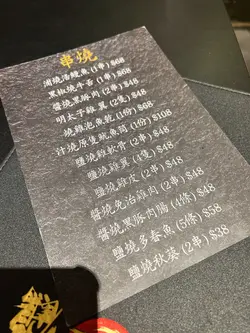 串燒
蒲燒活鰻魚 (1串) $68
黑椒燒牛舌 (1串) $68
醬燒黑豚肉 (2串) $48
明太子雞翼 (2隻) $48
燒雞泡魚乾 (1份) $68
汁燒原隻魷魚筒 (1份) $108
鹽燒雞軟骨 (2串) $48
鹽燒雞翼 (1隻) $48
鹽燒雞皮 (2串) $48
醬燒免治雞肉 (2串) $48
醬燒黑豚肉腸 (4條) $48
鹽燒多春魚 (5條) $58
鹽燒秋葵 (2串) $38